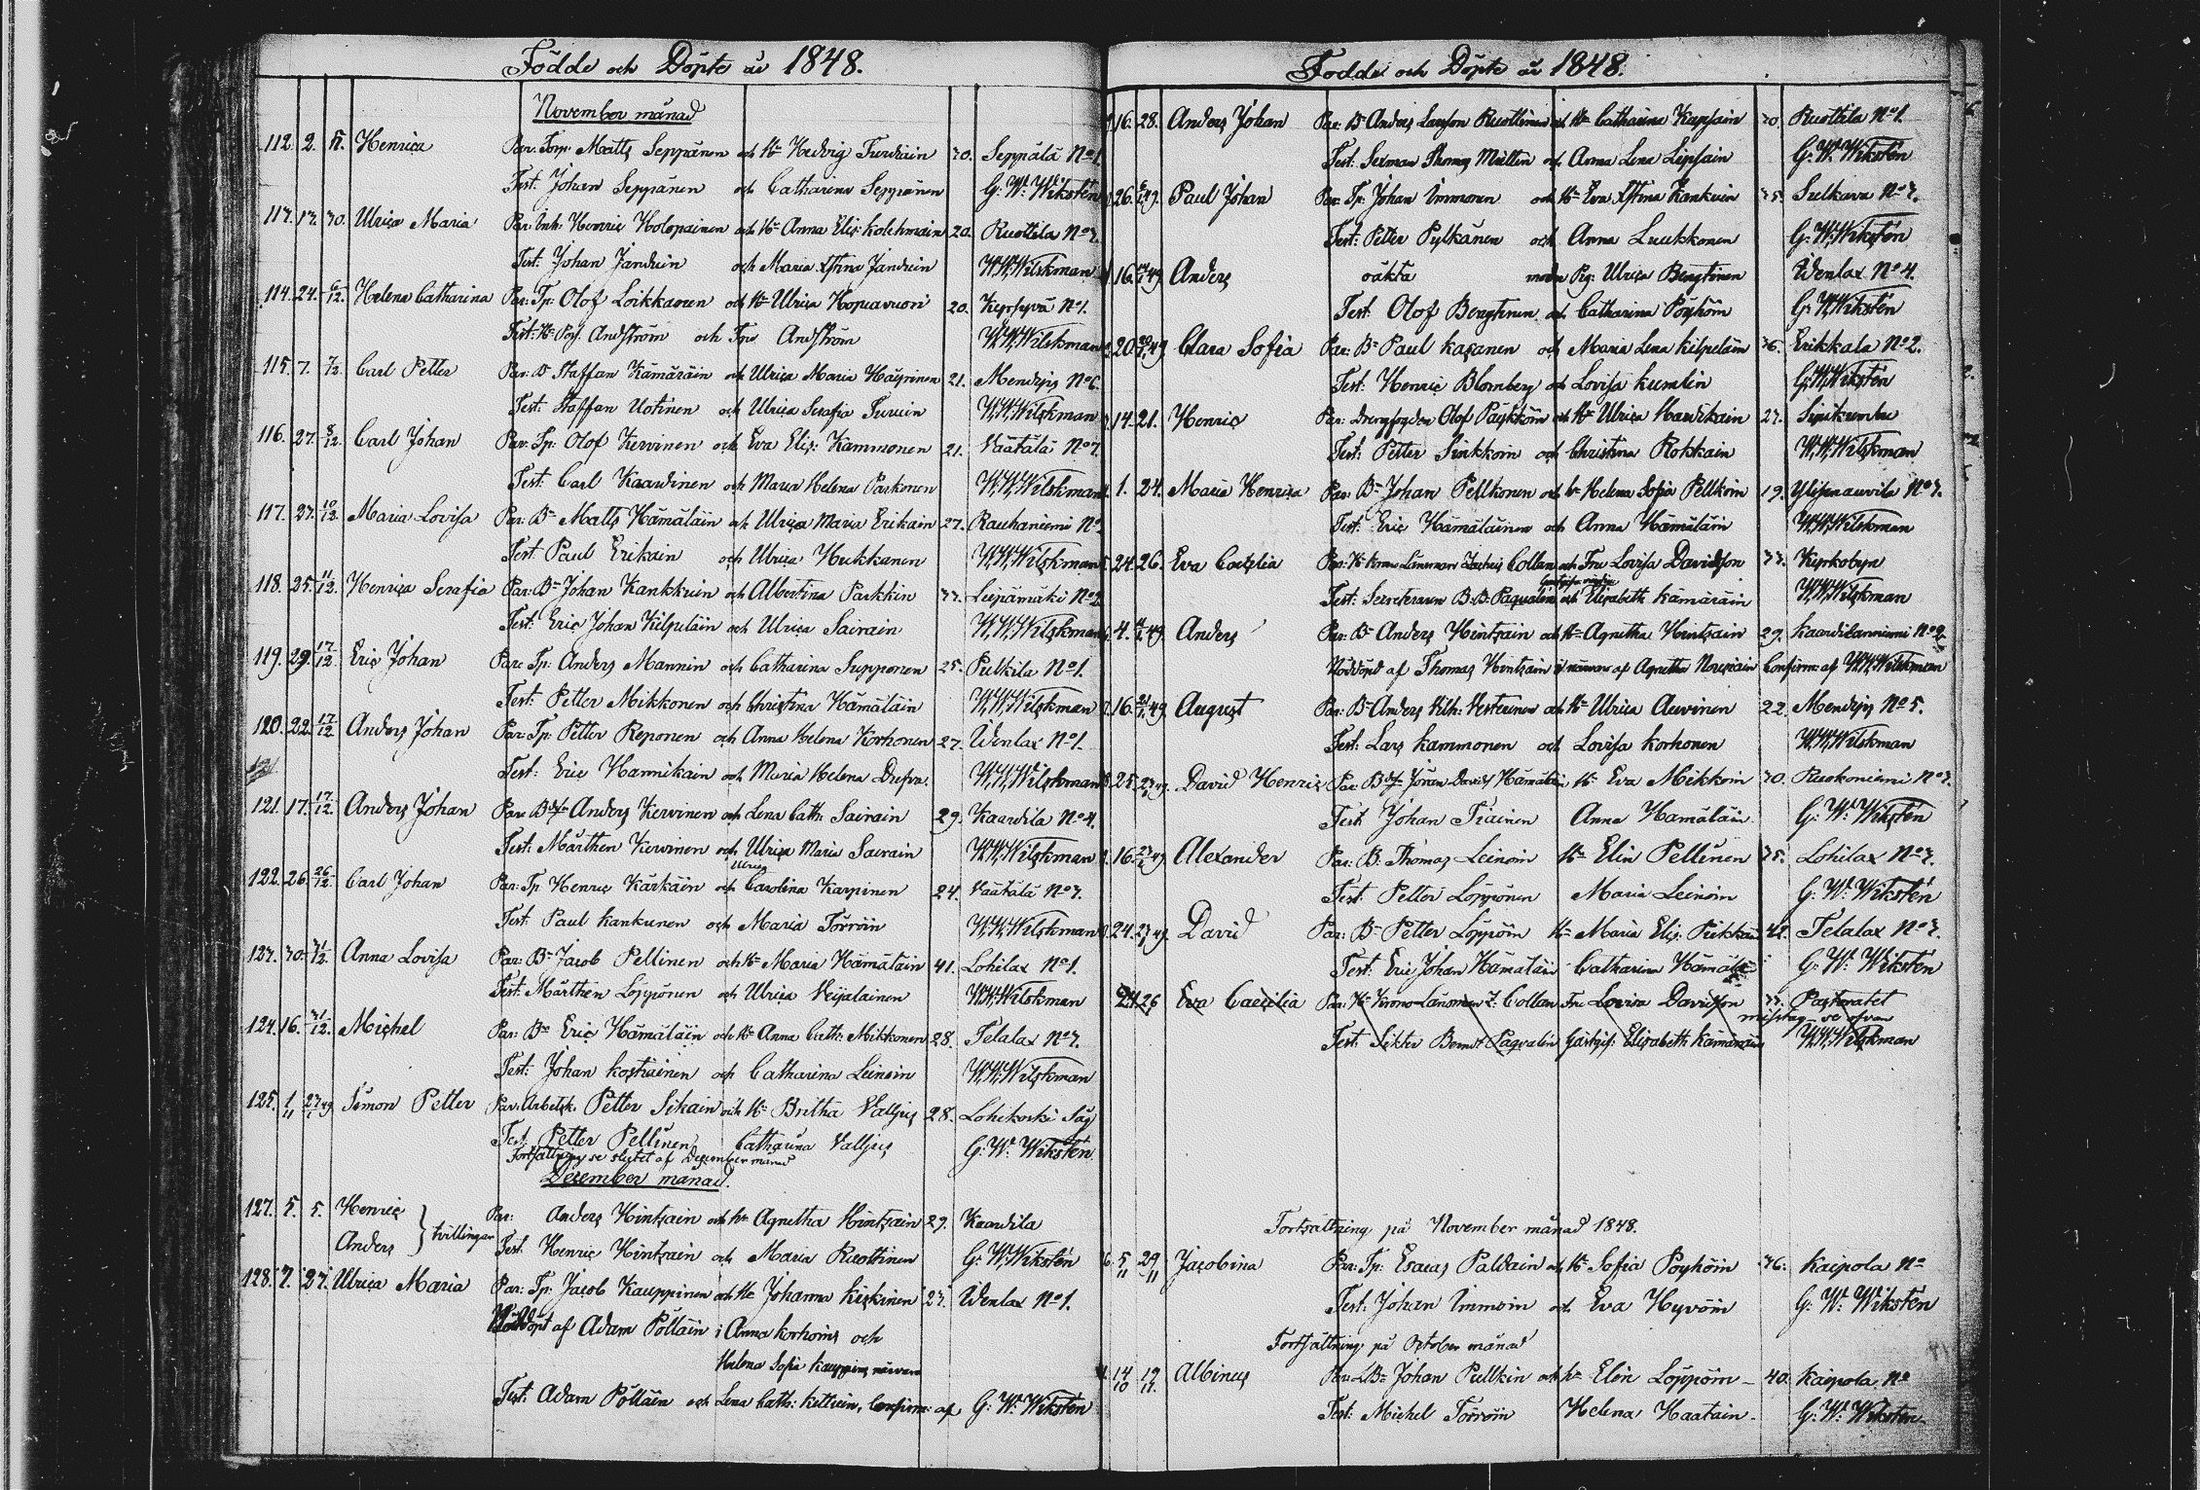 Födde och Döpte år 1848.
November månad
112. 2. 5. Henrica Par: Torp: Matts Seppänen och H:u Hedvig Turuiain 30. Seppälä No 1.
Test: Johan Seppänen och Catharina Seppänen G: W: Wikstén
113. 13. 30. Ulrica Maria Par: Inh: Henric Holopainen och H:u Anna Elis: Kolehmain 20. Ruottila No 3.
Test: Johan Janduin och Maria Xstina Janduin W. W. Wilskman
114. 24. 6/12. Helena Catharina Par: Tp: Olof Loikkanen och H:u Ulrica Hopeavuori 20. No 1.
Test: Andström och Andström W. W. Wilskman
115. 7. 7/12. Carl Petter Par: D Staffan Kämäräin och Ulrica Maria Häyrinen 21. No 6.
Test: Staffan Uotinen och Ulrica Serafia W. W. Wilskman
116. 27. 8/12. Carl Johan Par: Tp: Olof Kervinen och Eva Elis: Kammonen 21. Väätälä No 7.
Test: Carl Kaardinen och Maria Helena Parkonen W. W. Wilskman
117. 27. 10/12. Maria Lovisa Par: Bn Matts Hämäläin och Ulrica Maria Erikain 27. Rauhaniemi No
Test Paul Erikain och Ulrica Heikkanen W. W. Wilskman
118. 25. 11/12. Henrica Serafia Par: Bn Johan Kankkuin och Albertina Parkkin 33. Leipämäki No 2
Test: Eric Johan Kilpeläin och Ulrica Sairain W. W. Wilskman
119. 29. 17/12. Eric Johan Par: Tp: Anders Mannin och Catharina Supponen 25. Pulkila No 1.
Test: Petter Mikkonen och Christina Hämäläin W. W. Wilskman
120. 22. 17/12. Anders Johan Par: Tp: Petter Reponen och Anna Helena Korhonen 27. Wenlax No 1.
Test: Eric Hannikain och Maria Helena Drefva. W. W. Wilskman
121. 17. 17/12. Anders Johan Par: Anders Kervinen och Lena Cath: Sairain 29. Kaardila No 4.
Test: Mårthen Kervinen och Ulrica Maria Sairain W. W. Wilskman
122. 26. 26/12. Carl Johan Par: Tp Henric Kärkäin och Ulrica Carolina Karpinen 24. Väätälä No 7.
Test: Paul Kankunen och Maria Törröin W. W. Wilskman
123. 30. 31/12. Anna Lovisa Par: Bn Jacob Pellinen och H:u Maria Hämäläin 41. Lohilax No 1.
Test: Mårthen Löppönen och Ulrica Veijalainen W. W. Wilskman
124. 16. 31/12. Michel Par: Bn Eric Hämäläin och H:u Anna Cath: Mikkonen 28. Telalax No 7.
Test: Johan Kostiainen och Catharina Leinoin W. W. Wilskman
125. 1/11 27/1 49. Simon Petter Par: Arbetsk. Petter Sikain och H:u Britha Valljus 28. Lohikoski Såg
Test Petter Pellinen Catharina Valljus G: W: Wikstén
Fortsättning se slutet af December månad
December månad.
127. 5. 5. Henric Anders } tvillingar Par: Anders Hintsain och H:u Agnetha Hintsain 29. Kaardila
Test. Henric Hintsain och Maria Ruottinen G: W: Wikstén
128. 7. 27. Ulrica Maria Par: Tp: Jacob Kauppinen och H:u Johanna Kiskinen 23. Wenlax No 1.
Nöddöpt af Adam Pölläin i Anna Korhoins och
Helena Sofia Kauppins närvaro
Test: Adam Pölläin och Lena Cath: Kettuin, Confirm: af G: W: Wikstén
Födde och Döpte år 1848.
16. 28. Anders Johan Par: Bn Anders Larsson Ruottinen och H:u Catharina Kapiain 30. Ruottila No 1.
Test: Sexman Thomas Miettin och Anna Lena Lipsain G: W: Wikstén
26. 6/1 49. Paul Johan Par: Tp: Johan Immonen och H:u Eva Xstina Kankuin 35. Sulkava No 7.
Test: Petter Pylkänen och Anna Luukkonen G: W: Wikstén
16. 49. Anders oäkta moder Pig: Ulrica Bengtinen Wenlax No 4.
Test: Olof Bengtinen och Catharina Pöyhöin G: W: Wikstén
20. 49. Clara Sofia Par: Bn Paul Kasanen och Maria Lena Kilpeläin 36. Erikkala No 2.
Test: Henric Blomberg och Lovisa Kumlin G: W: Wikstén
14. 21. Henric Par: Olof Päykköin och H:u Ulrica Haukikain 27.
Test: Petter Sirkkoin och Christina Rokkain W. W. Wilskman
1. 24. Maria Henrica Par: Bn Johan Pellkonen och H:u Helena Sofia Pellkoin 19. No 7.
Test: Eric Hämäläinen och Anna Hämäläin W. W. Wilskman
24. 26. Eva Cæcilia Par: Hr Krono Länsman Zachris Collan och Fru Lovisa Davidson 33. Kyrkobyn
Test: Secreteraren B. B: Paqualin och Gästgifverskan Elisabeth Kämäräin W. W. Wilskman
4. 49. Anders Par: Bn Anders Hintsain och H:u Agnetha Hintsain 29. Kaardilanniemi No 2.
Nöddöpt af Thomas Hintsain i närvaro af Agnetha Nousiain Confirm: af W. W. Wilskman
16. 49. August Par: Bn Anders Vilh: Vesterinen och H:u Ulrica Auvinen 22. No 5.
Test: Lars Kammonen och Lovisa Korhonen W. W. Wilskman
25. 27/1 49. David Henric Par: Johan David Hämäläin, H:u Eva Mikkoin 30. Ruokoniemi No 3.
Test: Johan Tiainen Anna Hämäläin G: W: Wikstén
16. 27/1 49. Alexander Par: B: Thomas Leinoin H:u Elin Pellinen 35. Lohilax No 7.
Test: Petter Löppönen Maria Leinoin G: W: Wikstén
24. 27/1 49. David Par: Bn Petter Löppöin H:u Maria Elis: Pirkkäin 42. Telalax No 7.
Test: Eric Johan Hämäläin Catharina Hämäläin G: W: Wikstén
24 26 Eva Caecilia Par: Hr Krono-Länsman Z: Collan Fru Lovisa Davidson 33. Pastoratet
misstag - se ofvan
Test: Bernt Paqvalin Gästgif: Elisabeth Kämäräin W. W. Wilskman
Fortsättning på November månad 1848.
5/11 29/11 Jacobina Par: Tp: Esaias Paldain och H:u Sofia Pöyhöin 36. Kaipola No
Test: Johan Immoin och Eva Hyvöin G: W: Wikstén
Fortsättning på October månad
14/10 19/11. Albinus Par: Bn Johan Pulkin och H:u Elin Löppöin 40. Kaipola No
Test: Michel Törröin Helena Haatain G: W: Wikstén